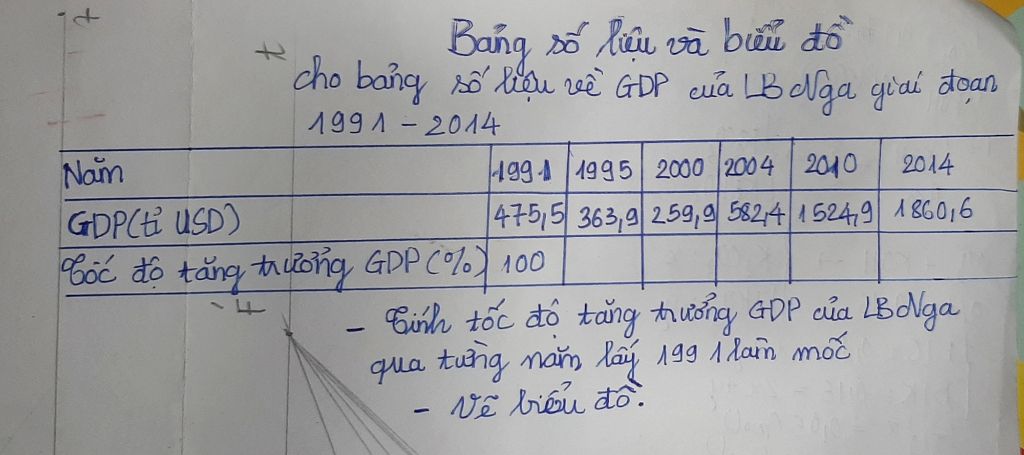 Bảng số liệu và biểu đồ
cho bảng số liệu về GDP của LB Nga giai đoạn
1991 - 2014
Năm 1991 1995 2000 2004 2010 2014
GDP(tỉ USD) 475,5 363,9 259,9 582,4 1524,9 1860,6
Tốc độ tăng trưởng GDP (%) 100
- Tính tốc độ tăng trưởng GDP của LB Nga
qua từng năm lấy 1991 làm mốc
- Vẽ biểu đồ.